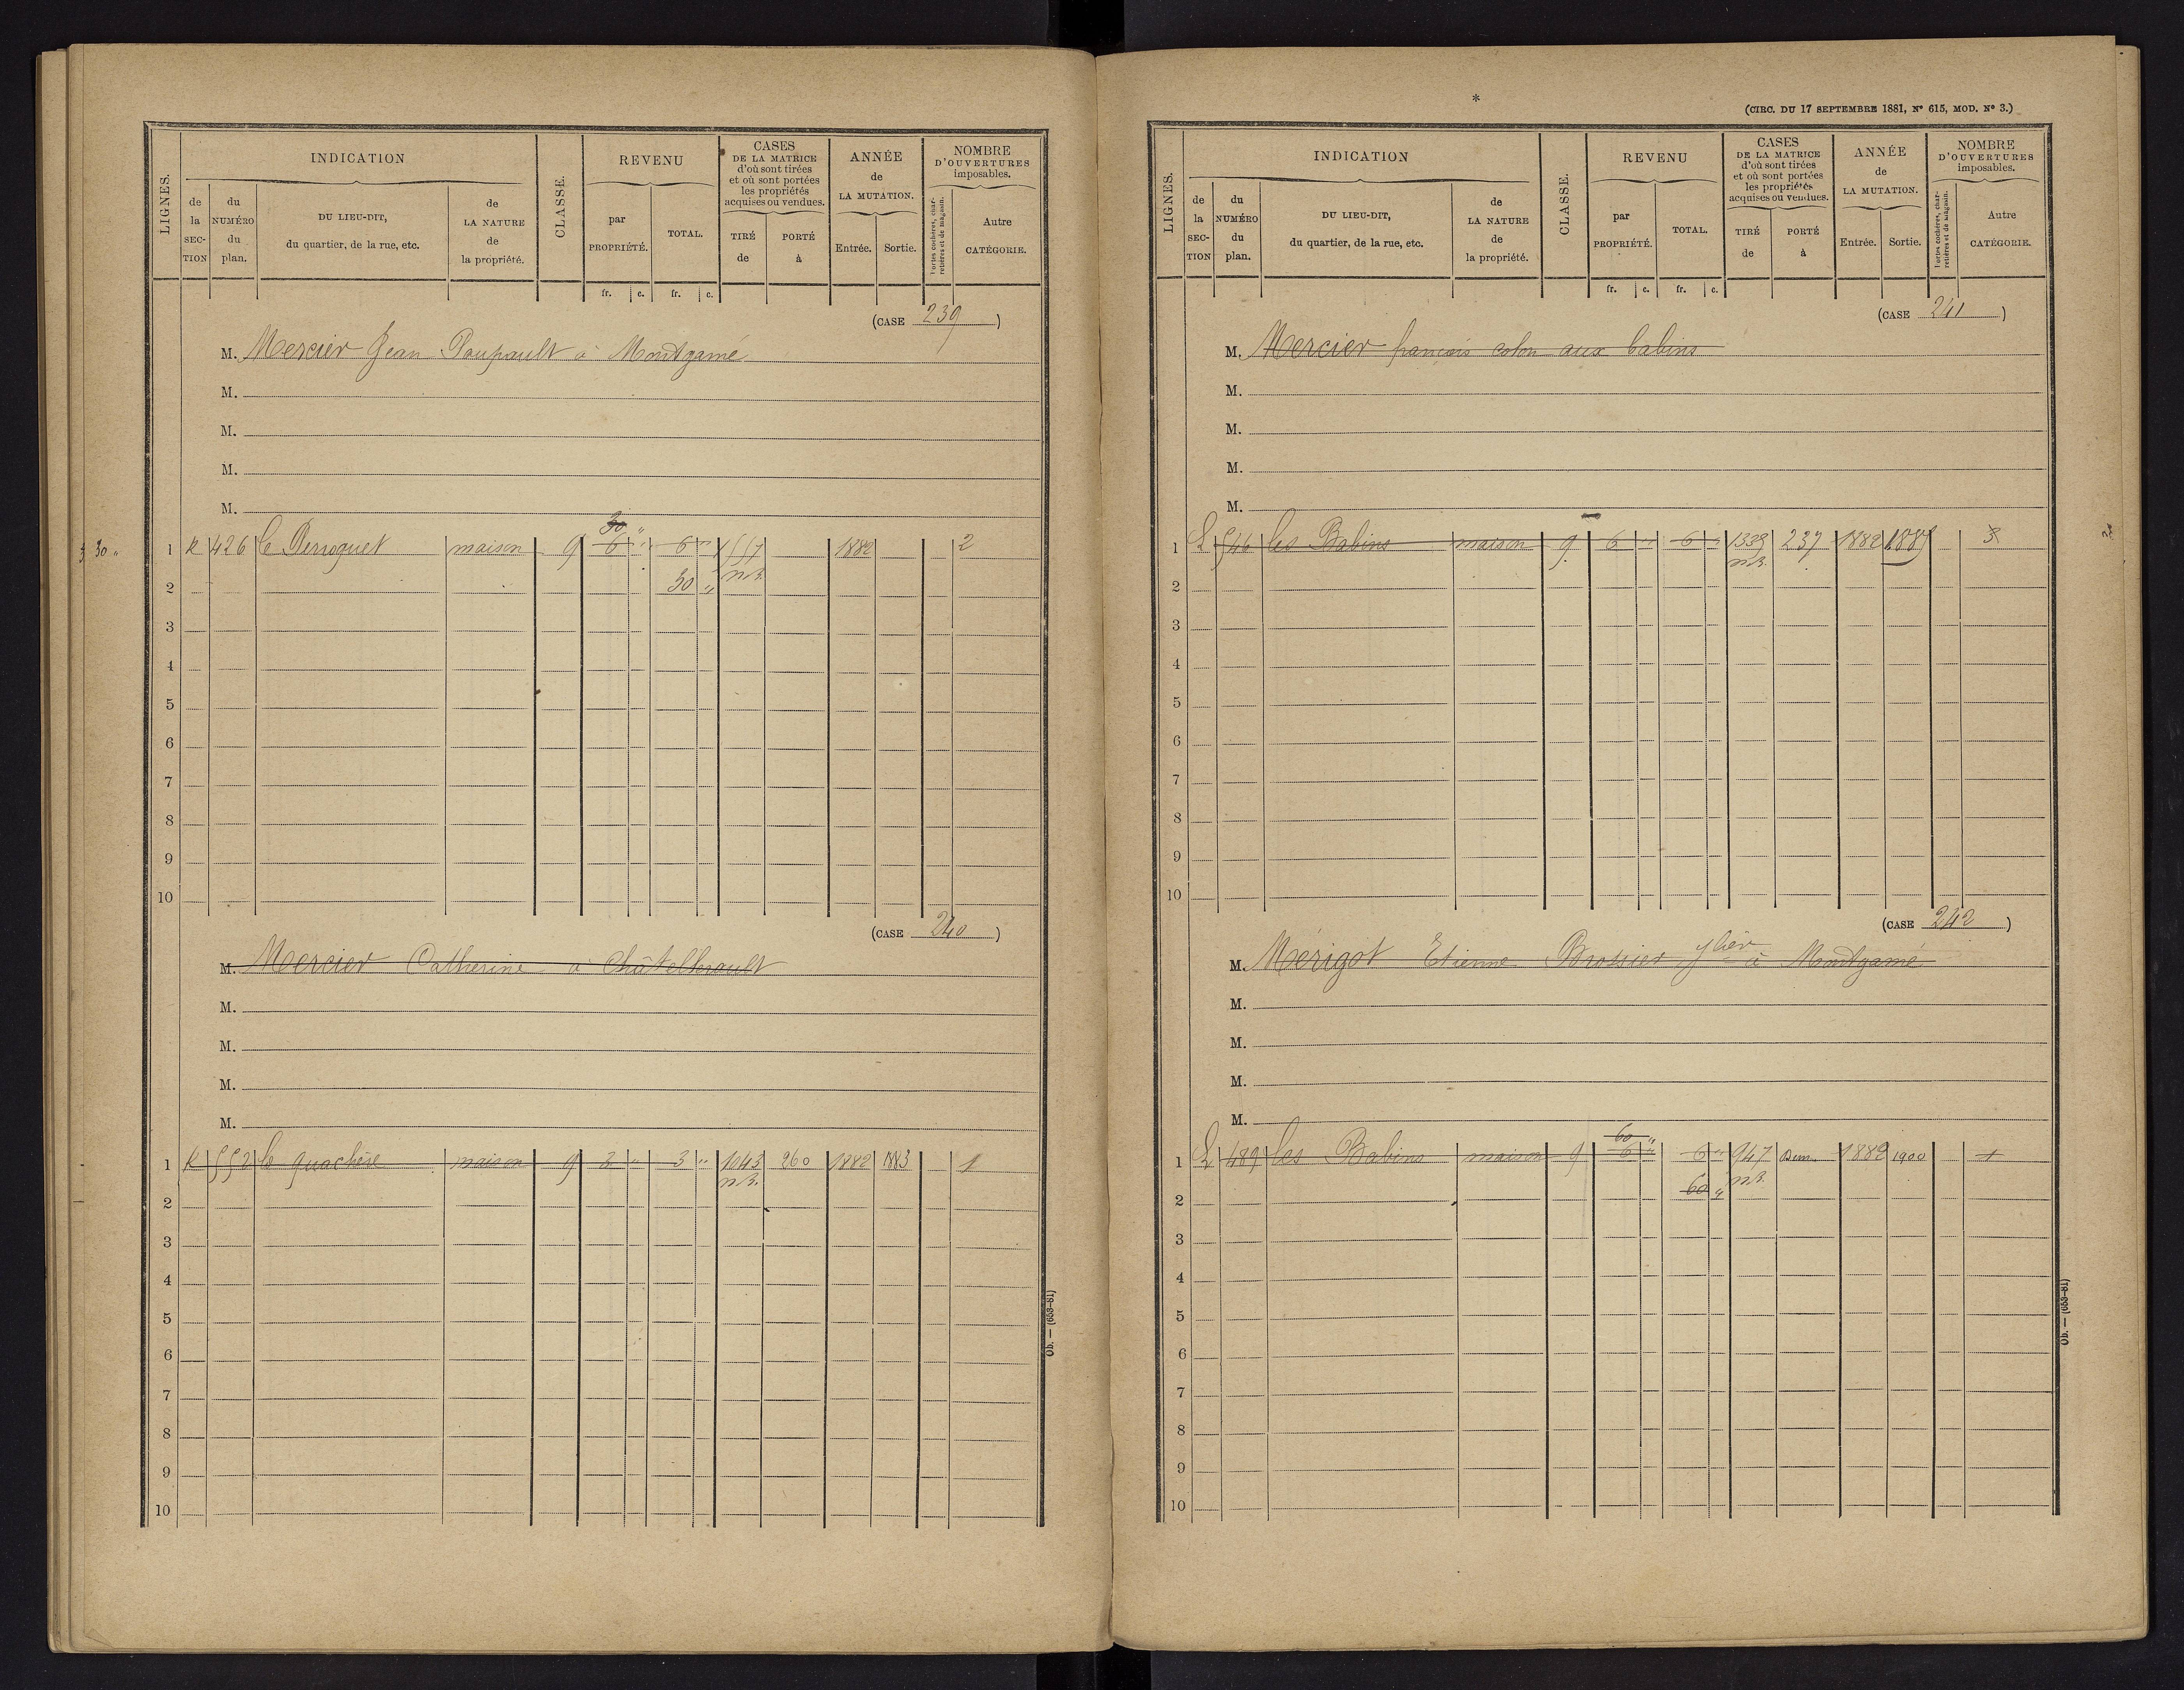 LIGNES.
INDICATION
de la SECTION
du NUMÉRO du plan.
DU LIEU-DIT, du quartier, de la rue, etc.
de LA NATURE de la propriété.
CLASSE.
REVENU
par PROPRIÉTÉ.
TOTAL.
CASES DE LA MATRICE d'où sont tirées et où sont portées les propriétés acquises ou vendues.
TIRÉ de
PORTÉ à
ANNÉE de LA MUTATION.
Entrée. Sortie.
NOMBRE D'OUVERTURES imposables.
Portes cochères, charretières et de magasin.
Autre CATÉGORIE.
fr. c. fr. c.
(CASE 239)
M. Mercier Jean Poupault à Montgamé
M.
M.
M.
M.
30 "
30 "
1 K 426 le Perroquet maison 9 6 " 6 " 1882 2
n.B.
2 30 "
3
4
5
6
7
8
9
10
(CASE 240)
M. Mercier Catherine à Châtellerault
M.
M.
M.
M.
1 K 552 le quachère maison 9 3 " 3 " 1043 260 1882 1883 1
n.B.
2
3
4
5
6
7
8
9
10
Ob. — (653-81)
*
(CIRC. DU 17 SEPTEMBRE 1881, Nº 615, MOD. Nº 3.)
LIGNES.
INDICATION
de la SECTION
du NUMÉRO du plan.
DU LIEU-DIT, du quartier, de la rue, etc.
de LA NATURE de la propriété.
CLASSE.
REVENU
par PROPRIÉTÉ.
TOTAL.
CASES DE LA MATRICE d'où sont tirées et où sont portées les propriétés acquises ou vendues.
TIRÉ de
PORTÉ à
ANNÉE de LA MUTATION.
Entrée. Sortie.
NOMBRE D'OUVERTURES imposables.
Portes cochères, charretières et de magasin.
Autre CATÉGORIE.
fr. c. fr. c.
(CASE 241)
M. Mercier françois colon aux babins
M.
M.
M.
M.
1 L 546 les Babins maison 9 6 " 6 " 1339 237 1882 3
n.B.
2
3
4
5
6
7
8
9
10
(CASE 242)
M. Mérigot Etienne Brossier à Montgamé
M.
M.
M.
M.
60 "
1 L 489 les Babins maison 9 6 " 6 " 947 Dém. 1882 1900 1
n.B.
2 60 "
3
4
5
6
7
8
9
10
Ob. — (653-81)